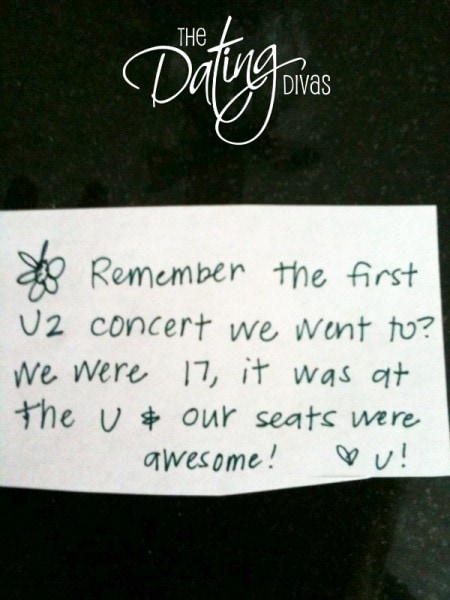 THE
Dating
DIVAS
Remember the first
U2 concert we went to?
We were 17, it was at
the U & our seats were
awesome! ♡ U!